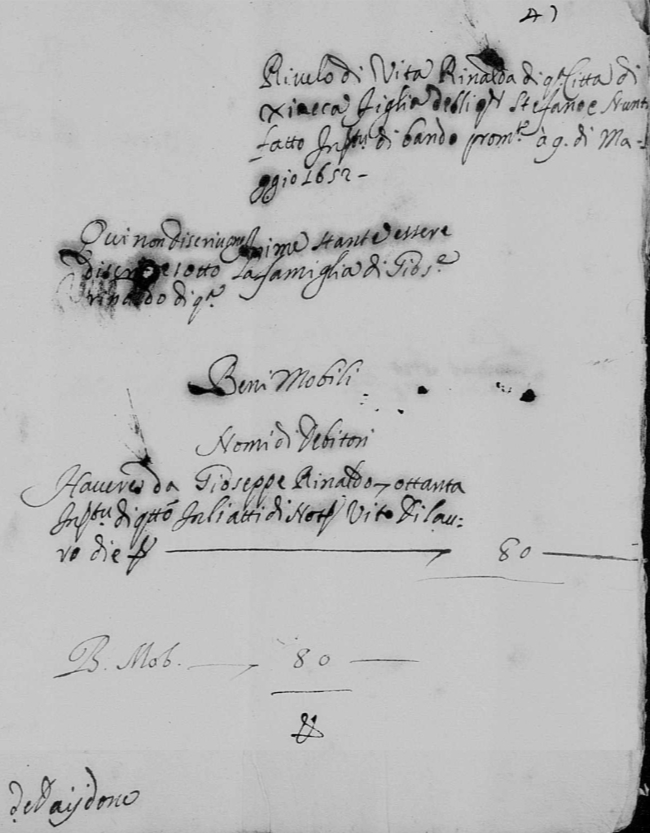 41
Rivelo di Vita Rinalda di q.ta Citta di
Xiacca figlia delli q.m Stefano e Nunt.
fatto In virtu di bando prom.to à 9. di Ma-
ggio 1652 -
Qui non discrive anime stante essere
sotto La famiglia di Gios.e
rinaldo di q.a
Beni Mobili
Nomi di Debitori
Havere da Gioseppe Rinaldo ottanta
di In li atti di Not. Vito Dilau:
ro die 80
B. Mob. 80